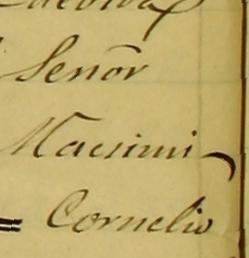 Señor
Macsimi-
= Cornelio